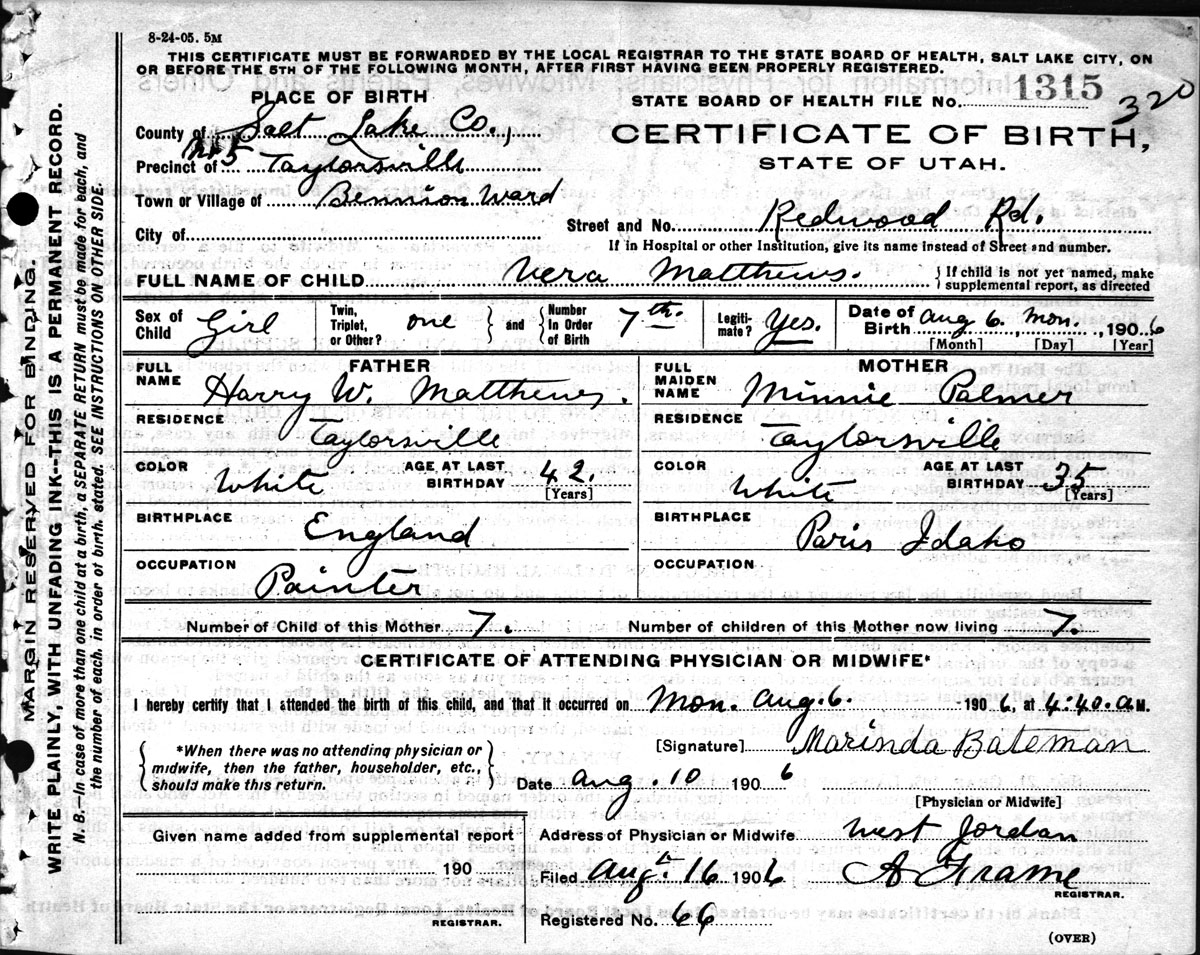 8-24-05. 5M
THIS CERTIFICATE MUST BE FORWARDED BY THE LOCAL REGISTRAR TO THE STATE BOARD OF HEALTH, SALT LAKE CITY, ON
OR BEFORE THE 5TH OF THE FOLLOWING MONTH, AFTER FIRST HAVING BEEN PROPERLY REGISTERED.
PLACE OF BIRTH
County of Salt Lake Co.,
Precinct of No 5 Taylorsville
Town or Village of Bennion Ward
City of
STATE BOARD OF HEALTH FILE No. 1315
320
CERTIFICATE OF BIRTH,
STATE OF UTAH.
Street and No. Redwood Rd.
If in Hospital or other Institution, give its name instead of Street and number.
FULL NAME OF CHILD Vera Matthews. } If child is not yet named, make
supplemental report, as directed
Sex of Child Girl Twin, Triplet, or Other? one { and } Number In Order of Birth 7th. Legiti-mate? Yes. Date of Birth Aug 6. Mon., 1906
[Month] [Day] [Year]
FATHER
FULL NAME Harry W. Matthews.
RESIDENCE Taylorsville
COLOR White AGE AT LAST BIRTHDAY 42.
[Years]
BIRTHPLACE England
OCCUPATION Painter
MOTHER
FULL MAIDEN NAME Minnie Palmer
RESIDENCE Taylorsville
COLOR White AGE AT LAST BIRTHDAY 35
[Years]
BIRTHPLACE Paris Idaho
OCCUPATION
Number of Child of this Mother 7. Number of children of this Mother now living 7.
CERTIFICATE OF ATTENDING PHYSICIAN OR MIDWIFE*
I hereby certify that I attended the birth of this child, and that it occurred on Mon. Aug. 6. 1906, at 4:40. a M.
{ *When there was no attending physician or
midwife, then the father, householder, etc.,
should make this return. }
[Signature] Marinda Bateman
Date Aug. 10 1906
[Physician or Midwife]
Given name added from supplemental report
190
REGISTRAR.
Address of Physician or Midwife West Jordan
Filed Aug. 16 1906 A Frame
REGISTRAR.
Registered No. 66
(OVER)
MARGIN RESERVED FOR BINDING.
WRITE PLAINLY, WITH UNFADING INK--THIS IS A PERMANENT RECORD.
N. B.—In case of more than one child at a birth, a SEPARATE RETURN must be made for each, and
the number of each, in order of birth, stated. SEE INSTRUCTIONS ON OTHER SIDE.